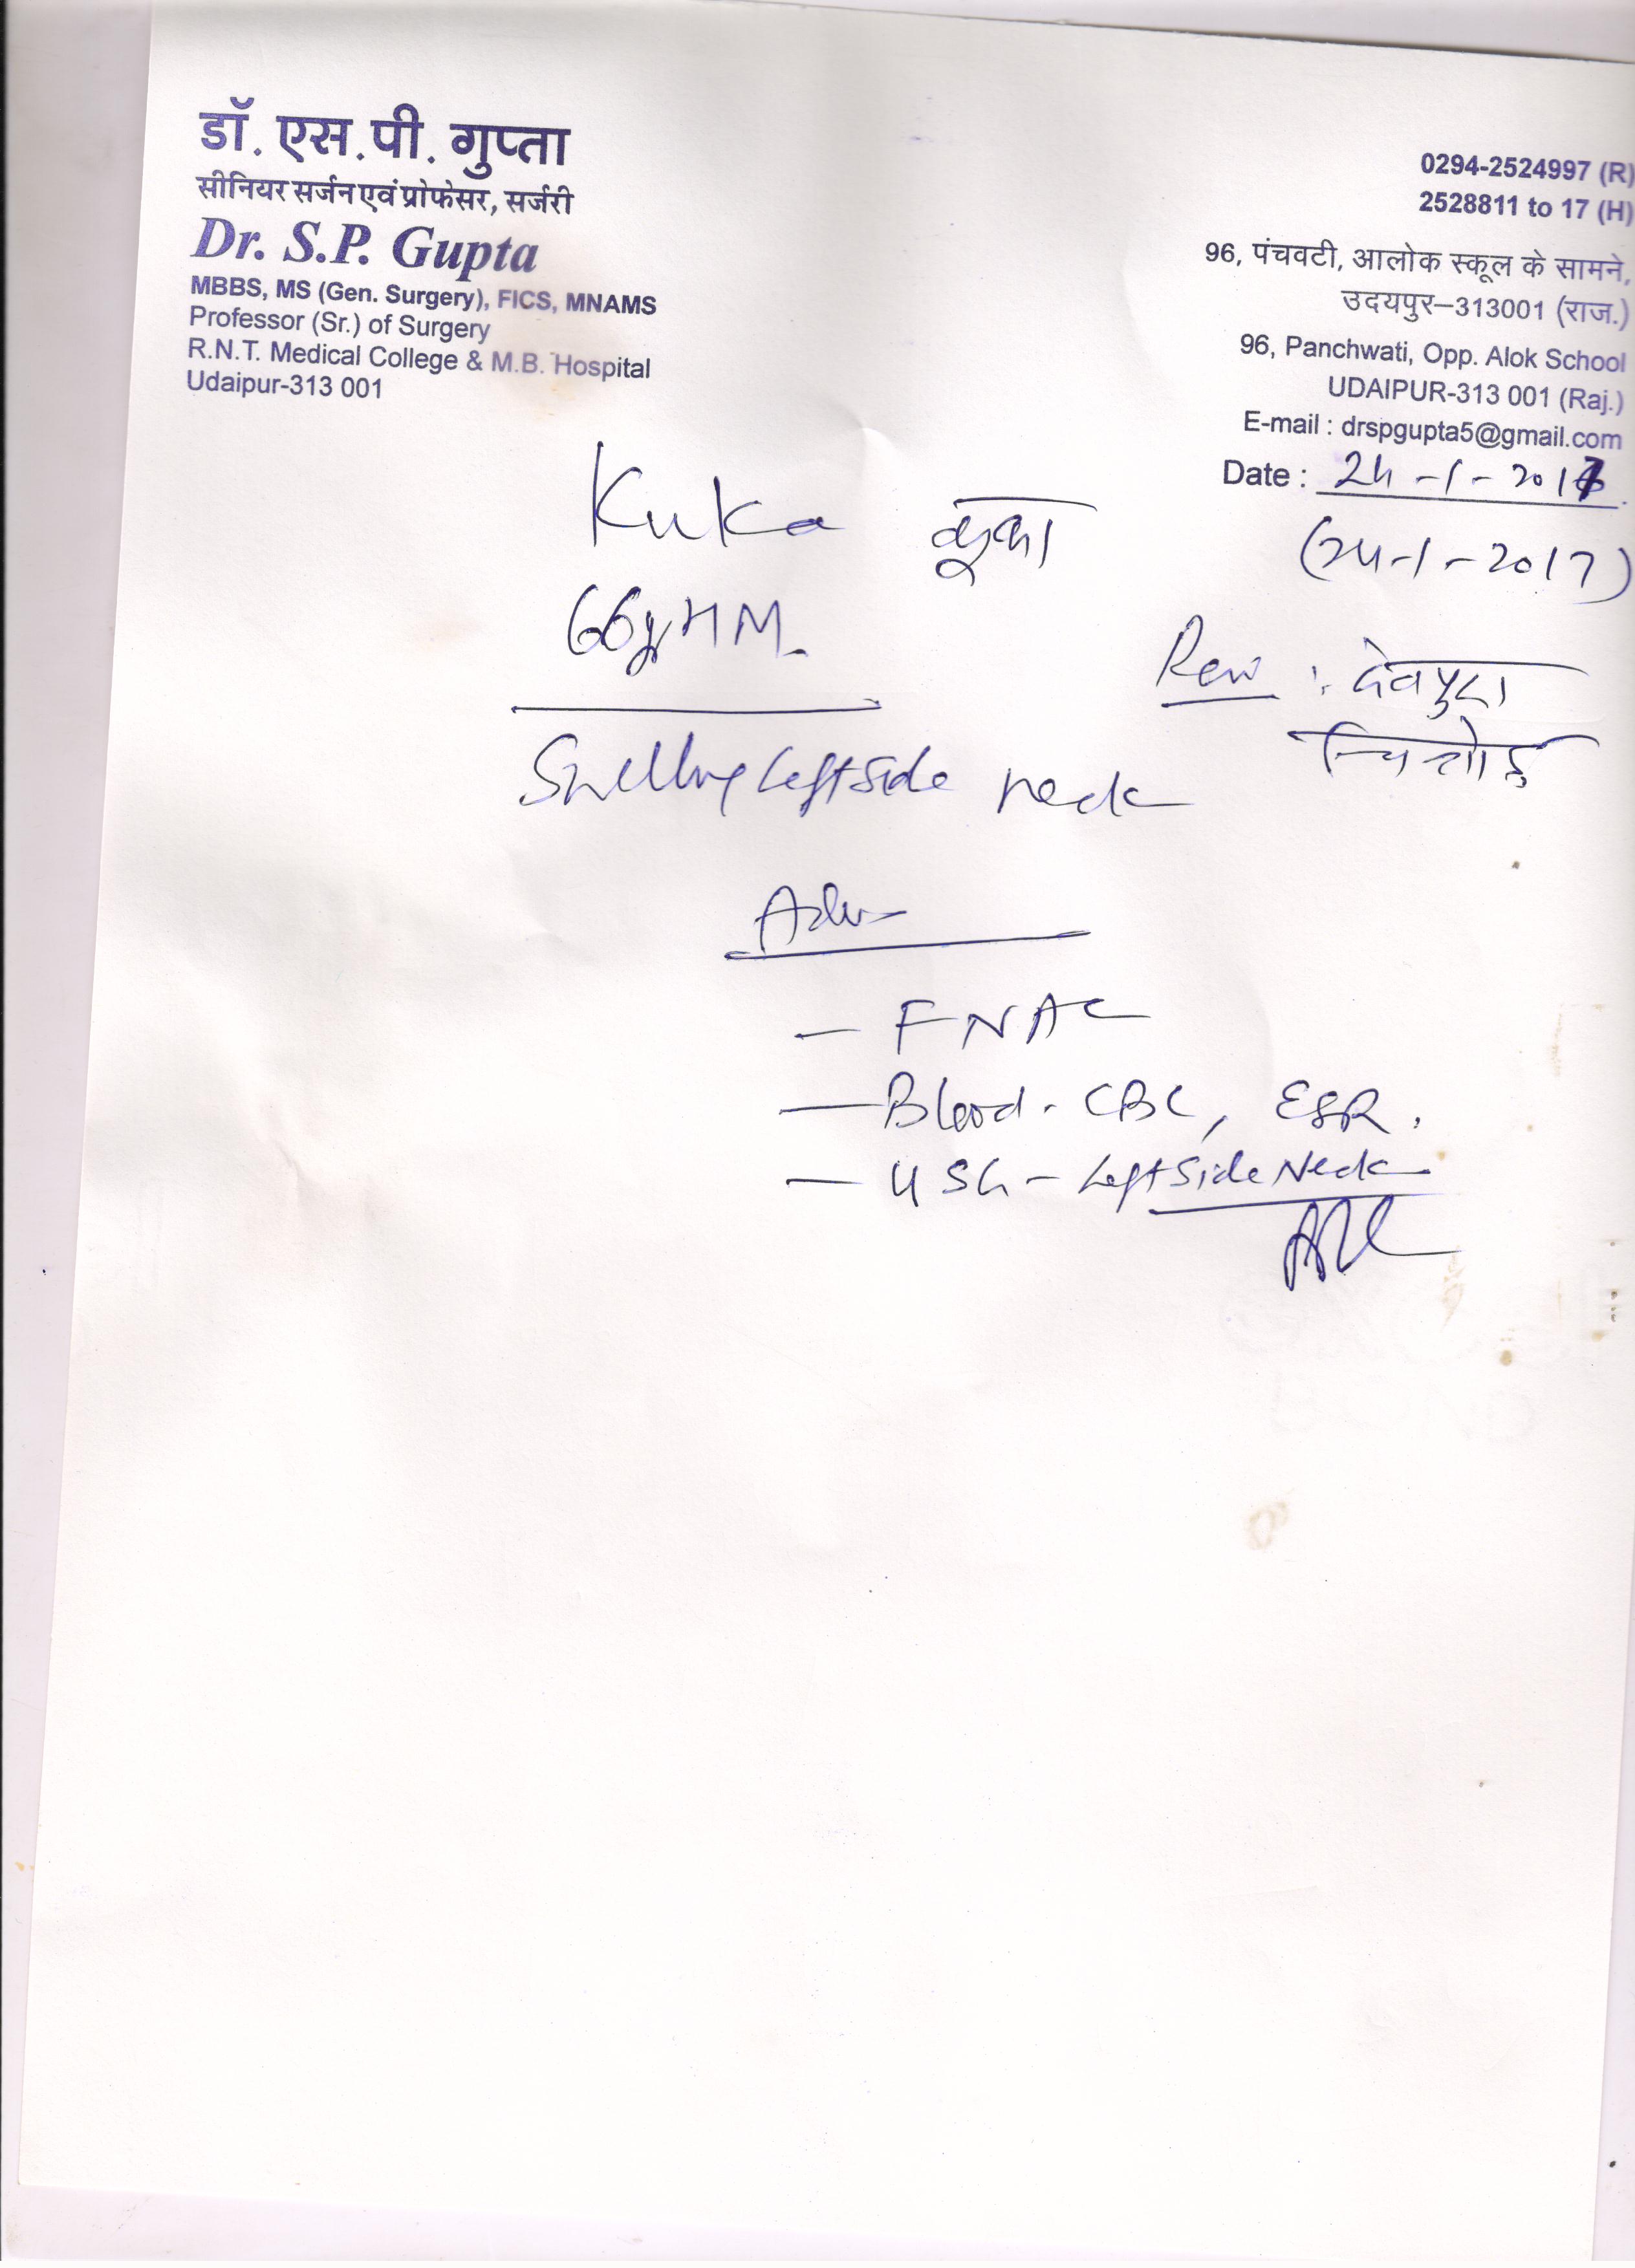 डॉ. एस.पी. गुप्ता
सीनियर सर्जन एवं प्रोफेसर, सर्जरी
Dr. S.P. Gupta
MBBS, MS (Gen. Surgery), FICS, MNAMS
Professor (Sr.) of Surgery
R.N.T. Medical College & M.B. Hospital
Udaipur-313 001
0294-2524997 (R)
2528811 to 17 (H)
96, पंचवटी, आलोक स्कूल के सामने,
उदयपुर–313001 (राज.)
96, Panchwati, Opp. Alok School
UDAIPUR-313 001 (Raj.)
E-mail : drspgupta5@gmail.com
Date : 24-1-2017
(24-1-2017)
Kuka कूका
66 HM.
देवपुरा
चित्तोड़
Swelling Left side neck
Adv-
- FNAC
- Blood - CBC, ESR.
- USG - Left Side Neck